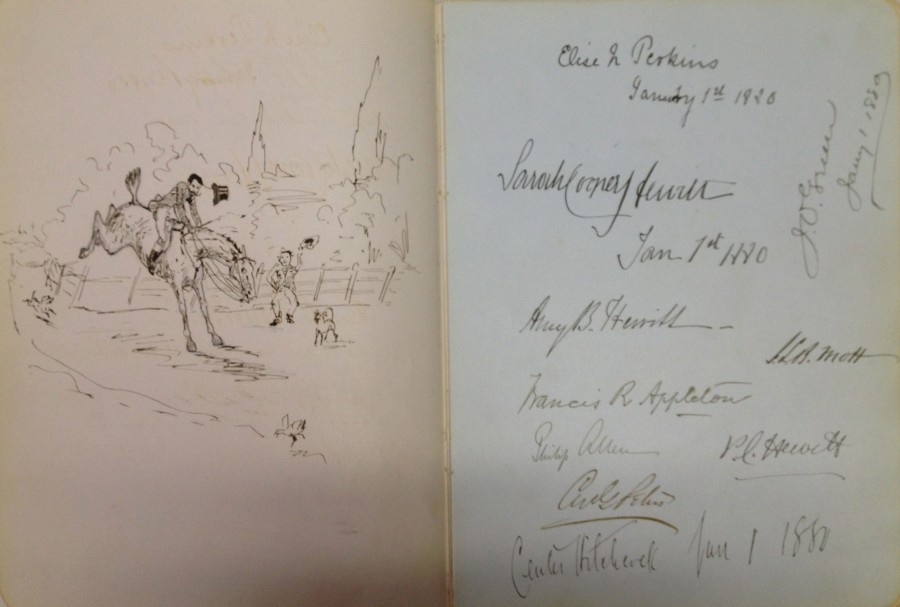 Elise N Perkins
January 1st 1880
J. O. Green
Jany 1 1880
Sarah Cooper Hewitt
Jan 1st 1880
Amy B. Hewitt
Mott
Francis R Appleton
Philip Allen
P. C. Hewitt
Center Hitchcock Jan 1 1880